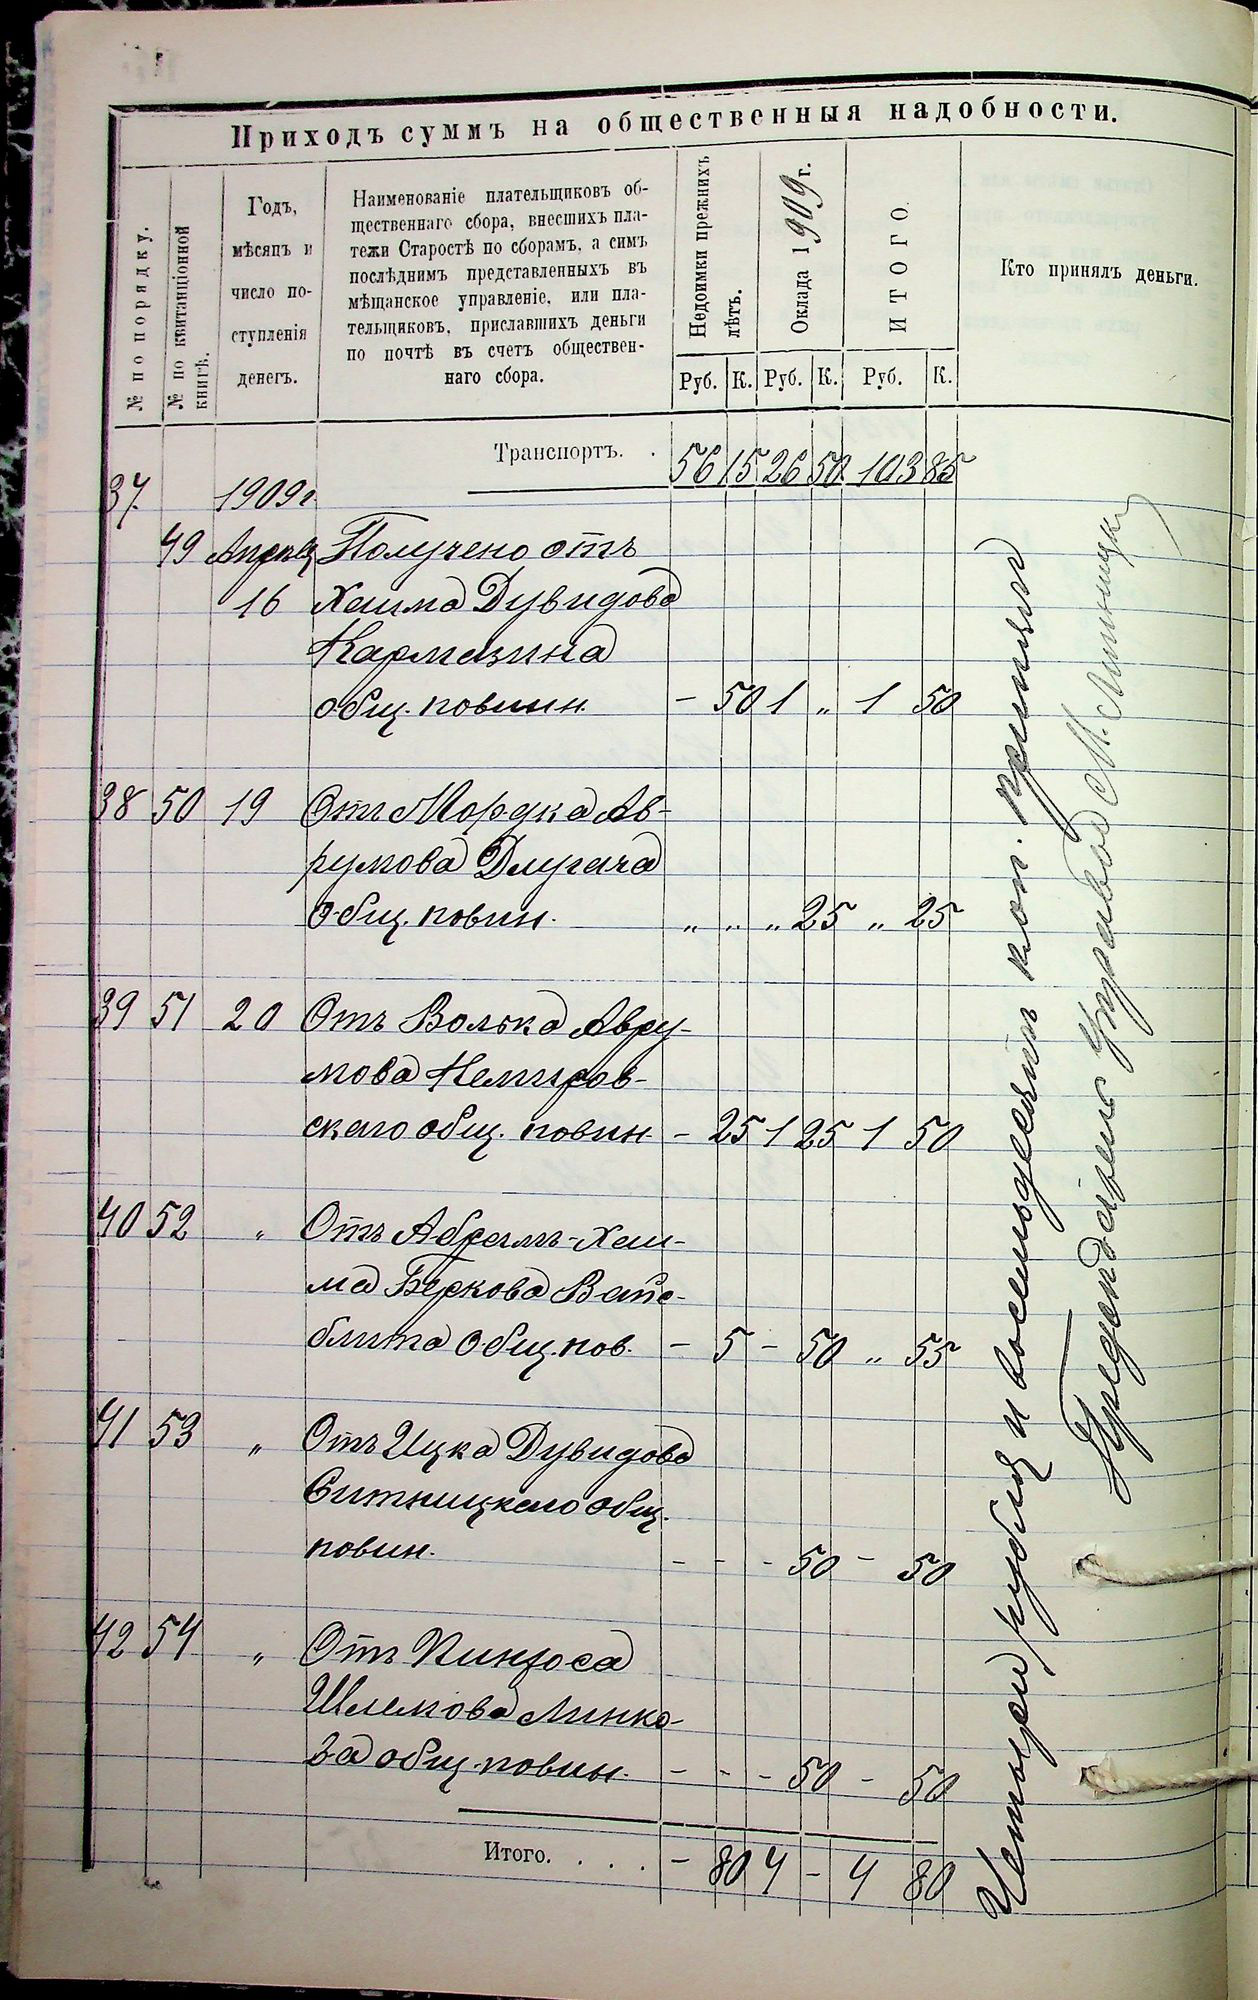 Приходъ суммъ на общественныя надобности.
№ по порядку.
№ по квитанціонной книгѣ.
Годъ,
мѣсяцъ и
число по-
ступленія
денегъ.
Наименованіе плательщиковъ об-
щественнаго сбора, внесшихъ пла-
тежи Старостѣ по сборамъ, а симъ
послѣднимъ представленныхъ въ
мѣщанское управленіе, или пла-
тельщиковъ, приславшихъ деньги
по почтѣ въ счетъ обществен-
наго сбора.
Недоимки прежнихъ лѣтъ.
Оклада 1909 г.
ИТОГО.
Кто принялъ деньги.
Руб. К. Руб. К. Руб. К.
Транспортъ. . 56 15 26 50 103 85
37. 1909 г
49 Апреля Получено отъ
16 Хаима Дувидова
Кармазина
общ. повинн. - 50 1 „ 1 50
38 50 19 Отъ Мордка Ав-
румова Длугача
общ. повин. „ „ „ 25 „ 25
39 51 20 Отъ Волька Авру-
мова Немиров-
скаго общ. повин - 25 1 25 1 50
40 52 „ Отъ Абрамъ-Хаи-
ма Беркова Вайс-
блита общ. пов. - 5 - 50 „ 55
41 53 „ Отъ Ицка Дувидова
Ситницкаго общ.
повин. - - - 50 - 50
42 54 „ Отъ Пинхоса
Шлемова Линко-
ва общ повин. - - - 50 - 50
Итого. . . . . - 80 4 - 4 80
Четыри рубля и восемьдесятъ коп. принялъ
М.